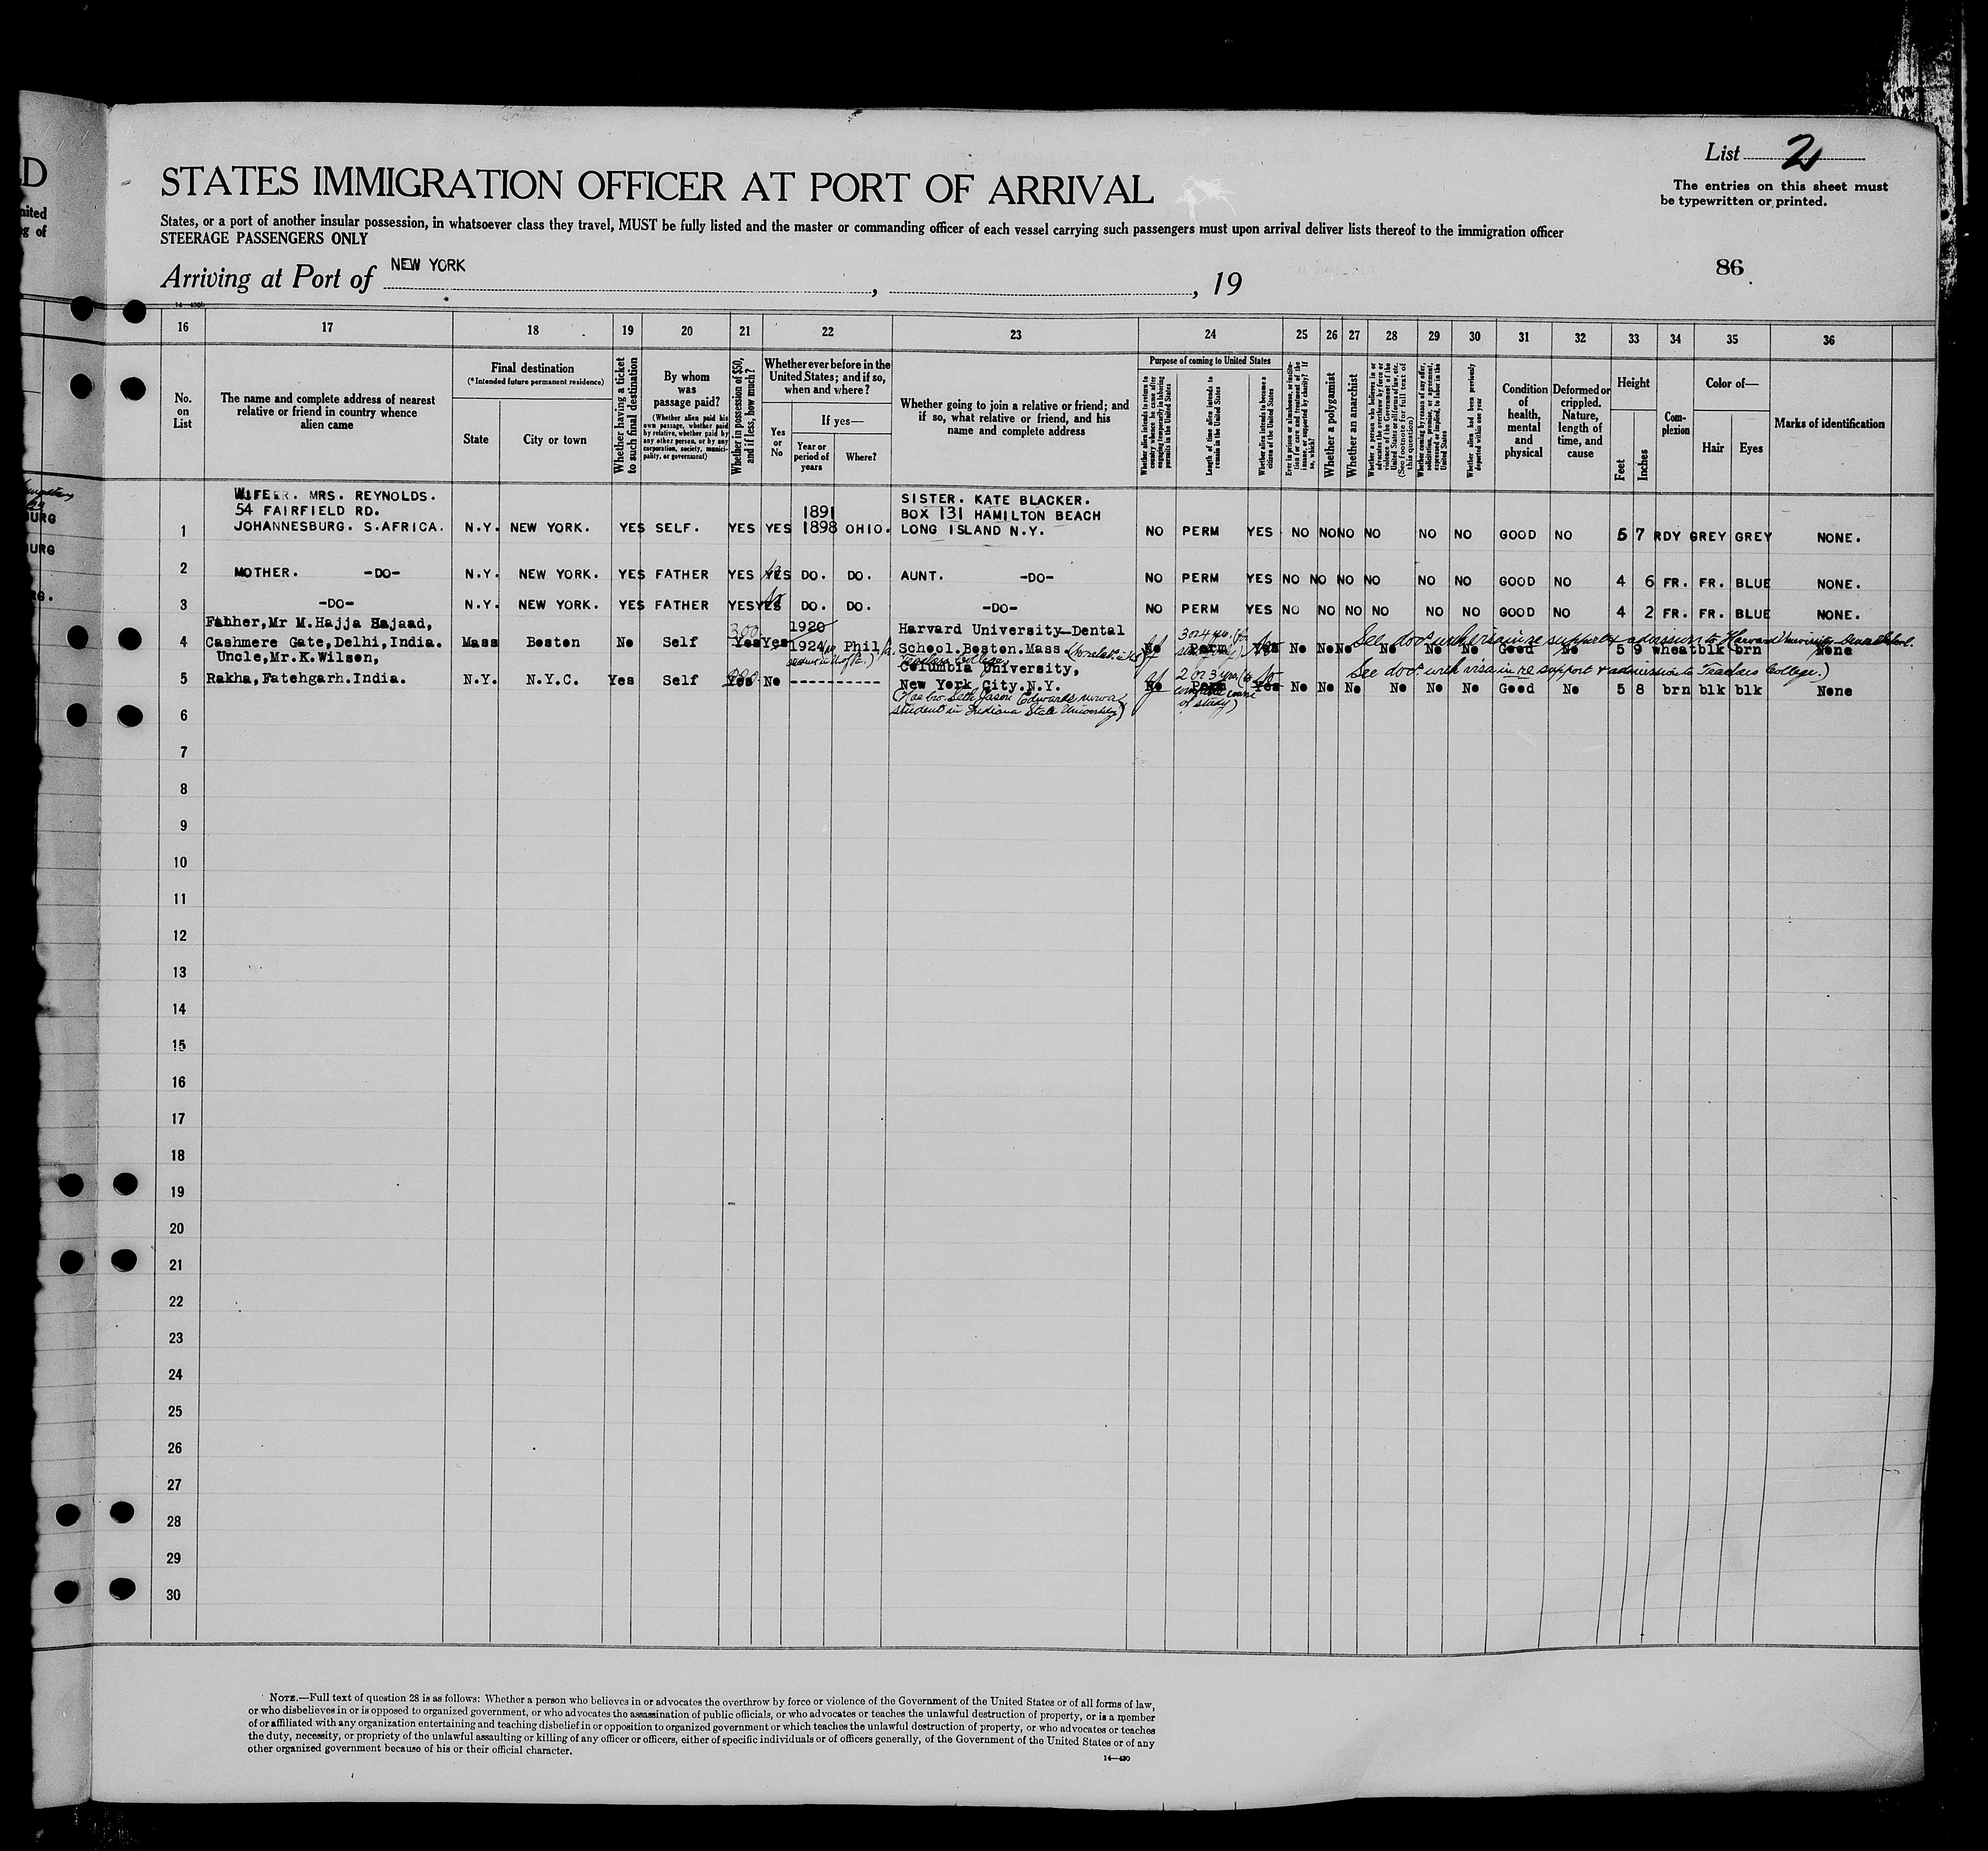 D
List 2
STATES IMMIGRATION OFFICER AT PORT OF ARRIVAL
The entries on this sheet must
be typewritten or printed.
nited
g of
States, or a port of another insular possession, in whatsoever class they travel, MUST be fully listed and the master or commanding officer of each vessel carrying such passengers must upon arrival deliver lists thereof to the immigration officer
STEERAGE PASSENGERS ONLY
Arriving at Port of NEW YORK , , 19
86
16 17 18 19 20 21 22 23 24 25 26 27 28 29 30 31 32 33 34 35 36
No. on List
The name and complete address of nearest relative or friend in country whence alien came
Final destination
(*Intended future permanent residence)
State
City or town
Whether having a ticket to such final destination
By whom was passage paid?
(Whether alien paid his own passage, whether paid by relative, whether paid by any other person, or by any corporation, society, municipality, or government)
Whether in possession of $50, and if less, how much?
Whether ever before in the United States; and if so, when and where?
Yes or No
If yes—
Year or period of years
Where?
Whether going to join a relative or friend; and if so, what relative or friend, and his name and complete address
Purpose of coming to United States
Whether alien intends to return to country whence he came after engaging temporarily in laboring pursuits in the United States
Length of time alien intends to remain in the United States
Whether alien intends to become a citizen of the United States
Ever in prison or almshouse, or institution for care and treatment of the insane, or supported by charity? If so, which?
Whether a polygamist
Whether an anarchist
Whether a person who believes in or advocates the overthrow by force or violence of the Government of the United States or all forms of law, etc. (See footnote for full text of this question)
Whether coming by reason of any offer, solicitation, promise, or agreement, expressed or implied, to labor in the United States
Whether alien had been previously deported within one year
Condition of health, mental and physical
Deformed or crippled. Nature, length of time, and cause
Height
Feet
Inches
Complexion
Color of—
Hair
Eyes
Marks of identification
WIFE. MRS. REYNOLDS.
54 FAIRFIELD RD.
1891
SISTER. KATE BLACKER.
BOX 131 HAMILTON BEACH
1 JOHANNESBURG. S.AFRICA. N.Y. NEW YORK. YES SELF. YES YES 1898 OHIO. LONG ISLAND N.Y. NO PERM YES NO NO NO NO NO NO GOOD NO 5 7 RDY GREY GREY NONE.
2 MOTHER. -DO- N.Y. NEW YORK. YES FATHER YES YES DO. DO. AUNT. -DO- NO PERM YES NO NO NO NO NO NO GOOD NO 4 6 FR. FR. BLUE NONE.
3 -DO- N.Y. NEW YORK. YES FATHER YES YES DO. DO. -DO- NO PERM YES NO NO NO NO NO NO GOOD NO 4 2 FR. FR. BLUE NONE.
Father,Mr M.Hajja Sajaad, 300 1920 Harvard University-Dental 3 or 4 yrs. See doct. with visa in re support & admission to Harvard University Dental School.
4 Cashmere Gate,Delhi,India. Mass Boston No Self Yes Yes 1924 Phil School.Boston.Mass No Perm Yes No No No No No No Good No 5 9 wheat blk brn None
Uncle,Mr.K.Wilson, Teachers College, Columbia University, 2 or 3 yrs. See doct. with visa in re support & admission to Teachers College.)
5 Rakha,Fatehgarh.India. N.Y. N.Y.C. Yes Self Yes No ---------- New York City.N.Y. No Perm Yes No No No No No No Good No 5 8 brn blk blk None
Jason Edwards
complete course of study)
student in Indiana State University)
6
7
8
9
10
11
12
13
14
15
16
17
18
19
20
21
22
23
24
25
26
27
28
29
30
NOTE.—Full text of question 28 is as follows: Whether a person who believes in or advocates the overthrow by force or violence of the Government of the United States or of all forms of law,
or who disbelieves in or is opposed to organized government, or who advocates the assassination of public officials, or who advocates or teaches the unlawful destruction of property, or is a member
of or affiliated with any organization entertaining and teaching disbelief in or opposition to organized government or which teaches the unlawful destruction of property, or who advocates or teaches
the duty, necessity, or propriety of the unlawful assaulting or killing of any officer or officers, either of specific individuals or of officers generally, of the Government of the United States or of any
other organized government because of his or their official character.
14—430